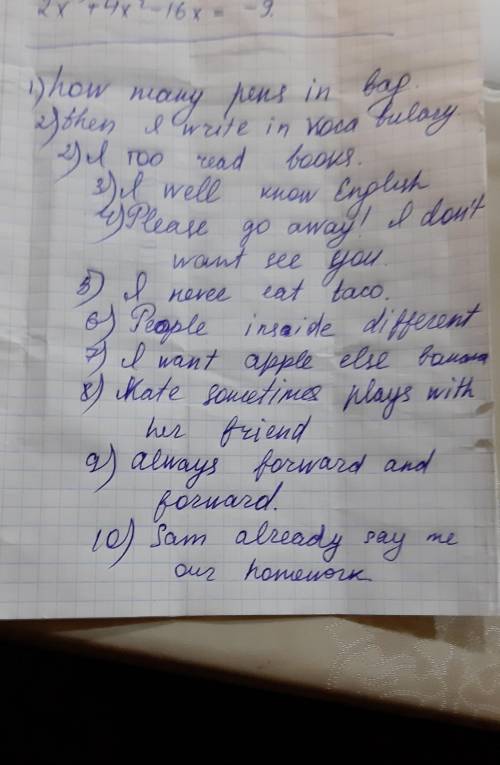 2x + 4x² - 16x = -9.
1) how many pens in bag.
2) then I write in voca bulary.
2) I too read books.
3) I well know English
4) Please go away! I don't
want see you.
5) I never eat taco.
6) People inside different
7) I want apple else banana
8) Kate sometimes plays with
her friend
9) always forward and
forward.
10) Sam already say me
our homework